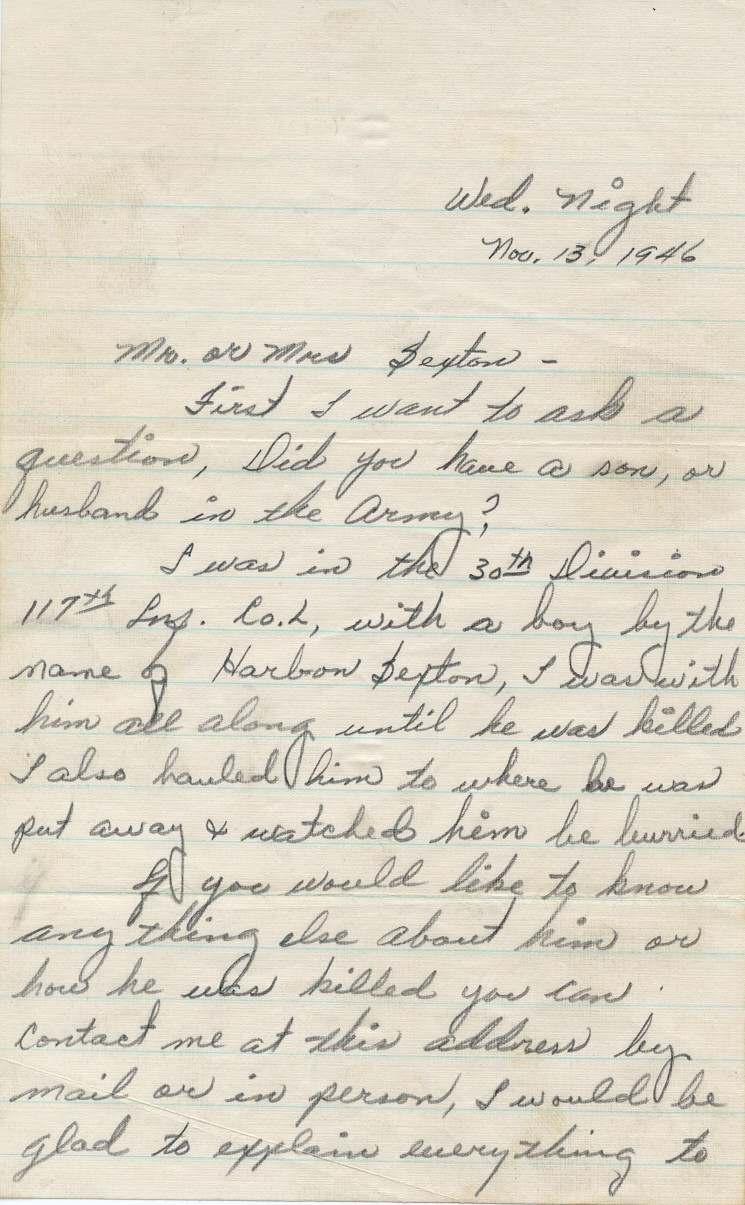 Wed. Night
Nov. 13, 1946
Mr. or Mrs Sexton -
First I want to ask a
question, Did you have a son, or
husband in the Army?
I was in the 30th Division
117th Inf. Co. L, with a boy by the
name of Harbon Sexton, I was with
him all along until he was killed
I also hauled him to where he was
put away & watched him be burried.
If you would like to know
any thing else about him or
how he was killed you can
contact me at this address by
mail or in person, I would be
glad to explain everything to